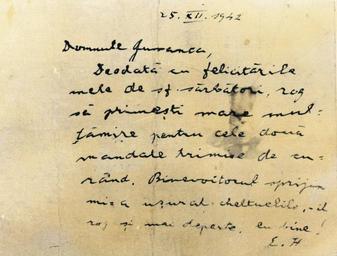 25. XII. 1942
Domnule Jumanca,
Deodată cu felicitările
mele de sf. sărbători, rog
să primești mare mul-
țămire pentru cele două
mandate trimise de cu-
rând. Binevoitorul sprijin
mi-a ușurat cheltuelile, -il
rog și mai departe, cu bine!
E. H